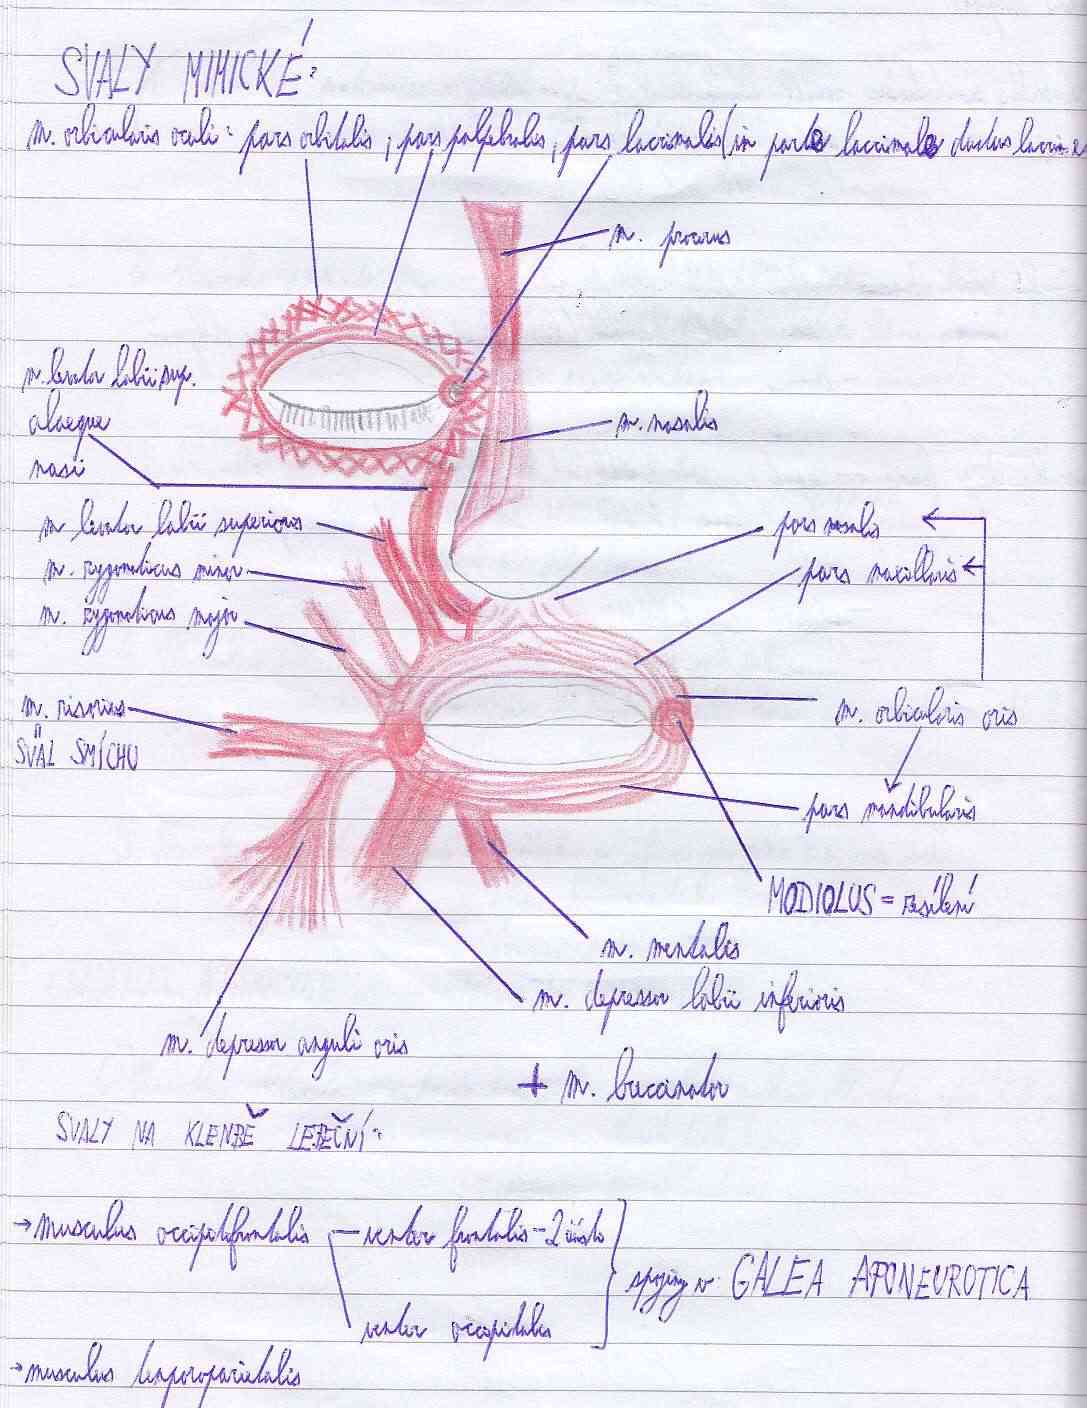 SVALY MIMICKÉ:
m. orbicularis oculi: pars orbitalis, pars palpebralis, pars lacrimalis (in parte lacrimale
m. procerus
m. levator labii sup.
alaeque
nasi
m. nasalis
m levator labii superioris
pars nasalis
m. zygomaticus minor
pars maxillaris
m. zygomaticus major
m. risorius
m. orbicularis oris
"
SVAL SMÍCHU
pars mandibularis
MODIOLUS = zesílení
m. mentalis
m. depressor labii inferioris
m. depressor anguli oris
+ m. buccinator
SVALY NA KLENBĚ LEBEČNÍ:
→ musculus occipitofrontalis - venter frontalis - 2 části
spojeny v GALEA APONEUROTICA
venter occipitalis
→ musculus temporoparietalis